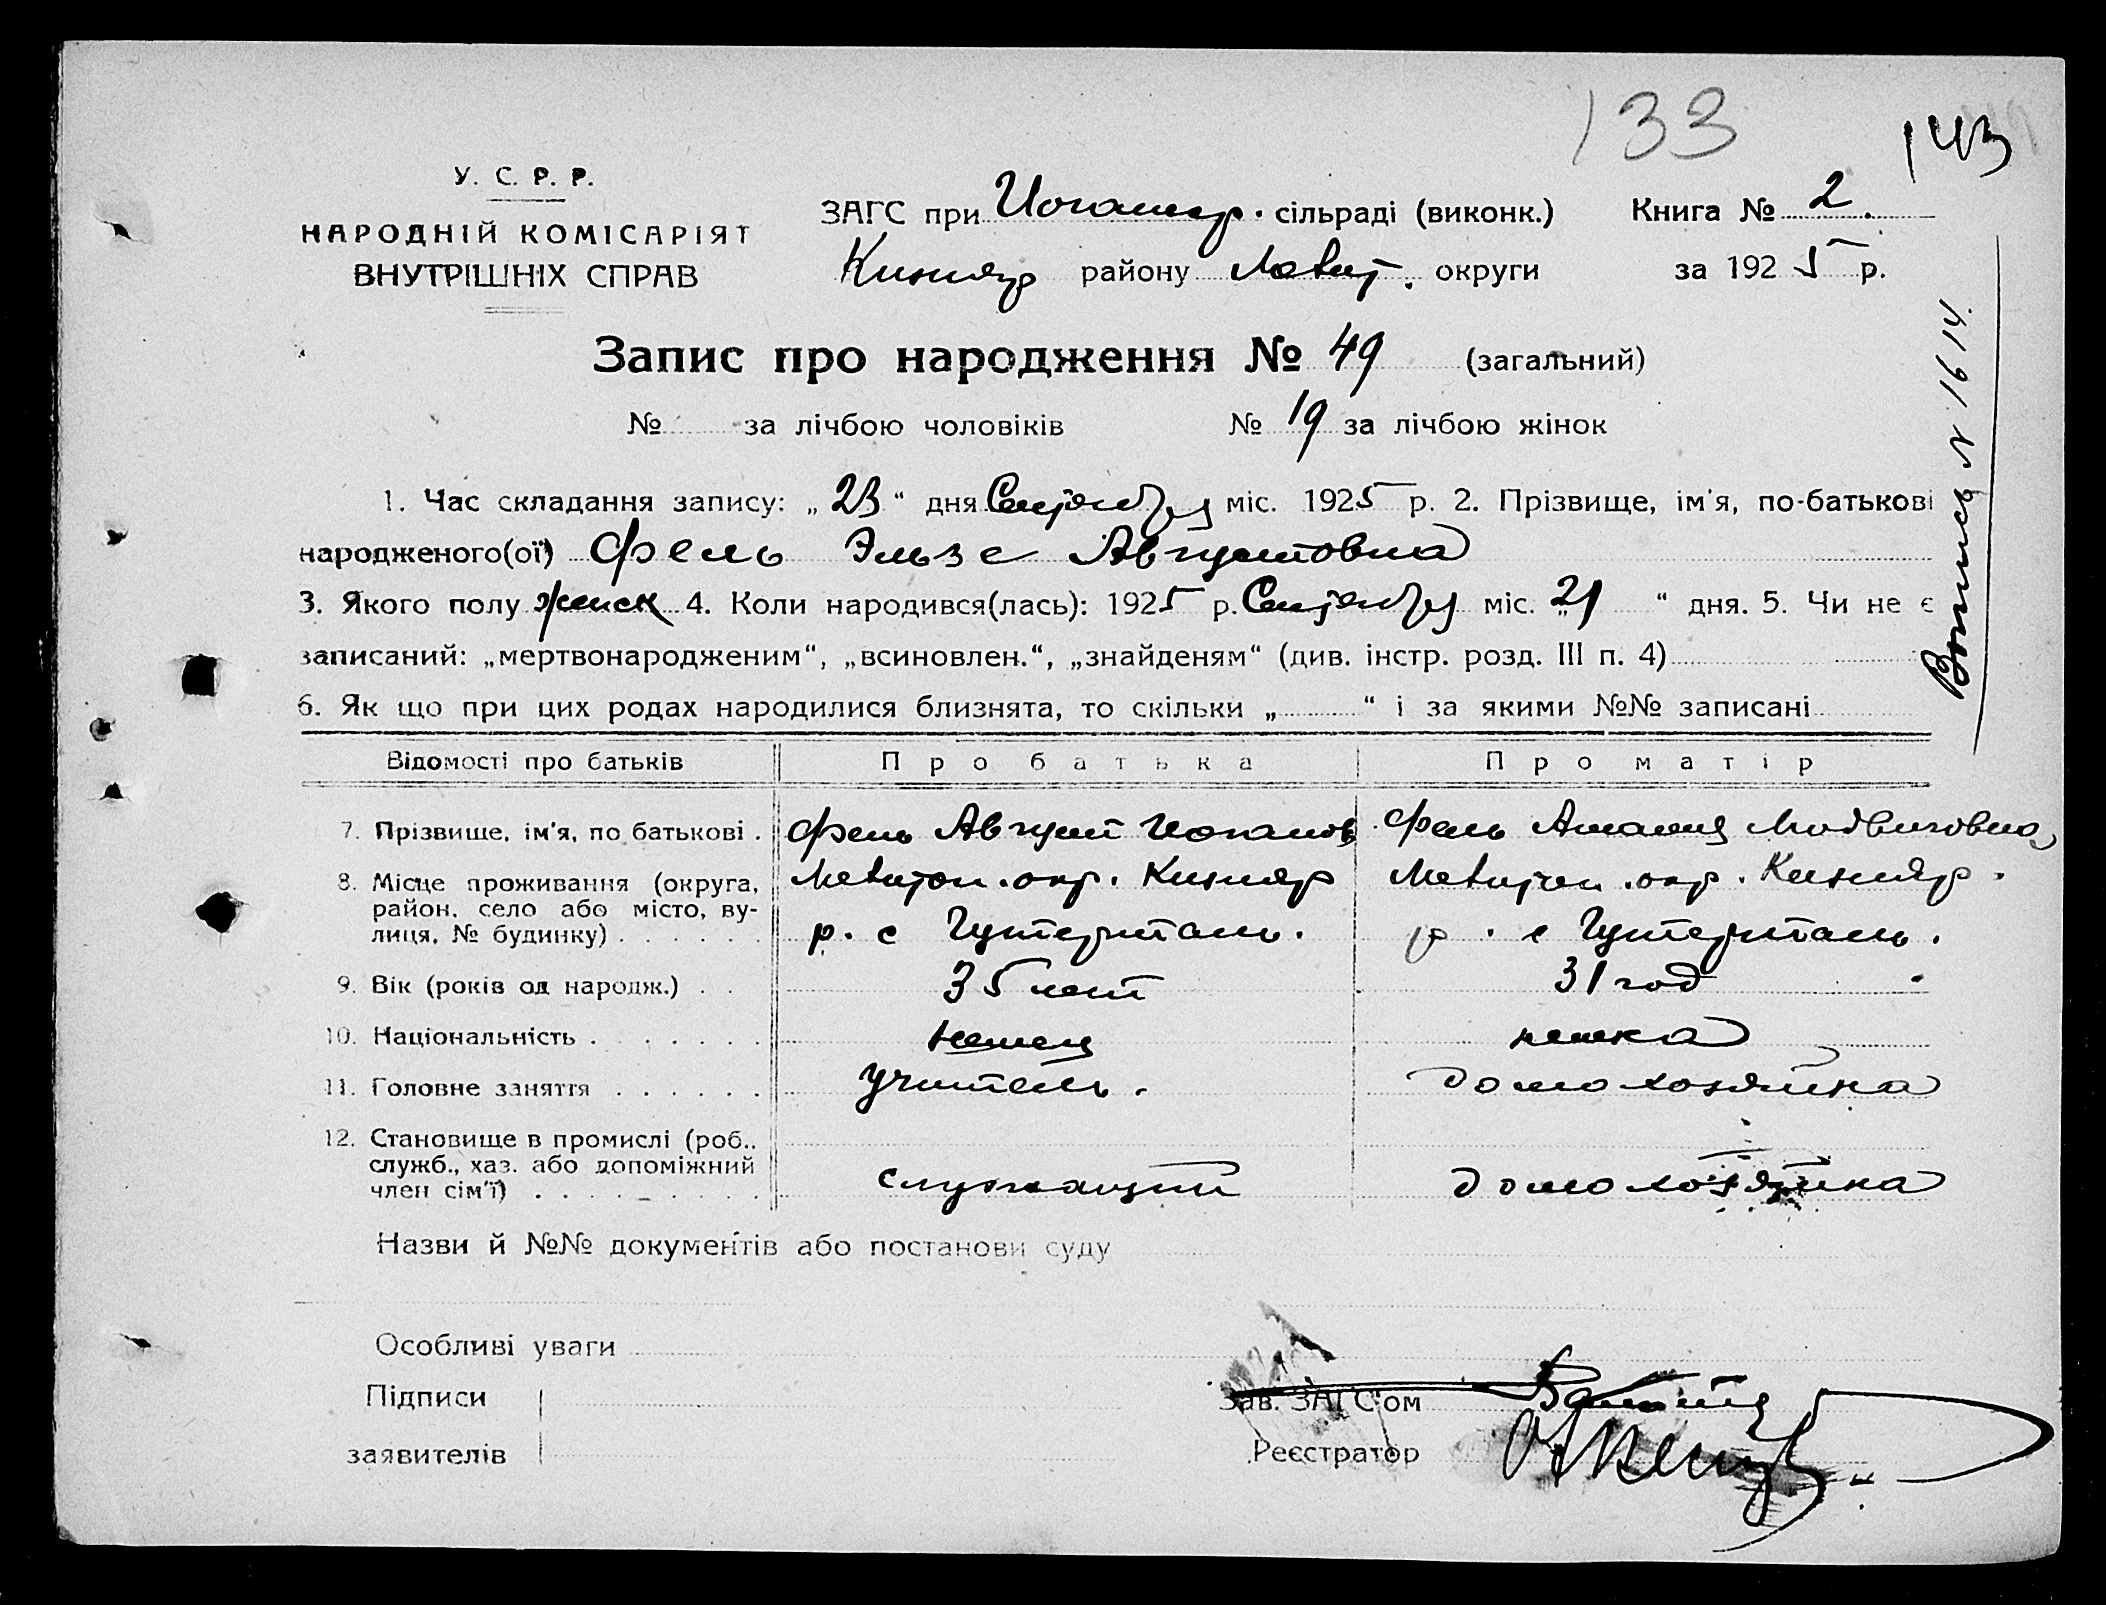 133
143
У. С. Р. Р.
НАРОДНІЙ КОМІСАРІЯТ
ВНУТРІШНІХ СПРАВ
ЗАГС при сільраді (виконк.) Книга № 2.
району округи за 1925 р.
Запис про народження № 49 (загальний)
№ за лічбою чоловіків № 19 за лічбою жінок
1. Час складання запису: „23“ дня Сентября міс. 1925 р. 2. Прізвище, ім'я, по-батькові
народженого(ої) Фель Эльзе Августовна
3. Якого полу женск 4. Коли народився(лась): 1925 р. Сентября міс. „21“ дня. 5. Чи не є
записаний: „мертвонародженим“, „всиновлен.“, „знайденям“ (див. інстр. розд. III п. 4)
6. Як що при цих родах народилися близнята, то скільки „ “ і за якими №№ записані
Відомості про батьків Про батька Про матір
7. Прізвище, ім'я, по батькові . Фель Август Иоганов Фель Амалия Людвиговна
8. Місце проживання (округа, Мелитоп. окр. Мелитоп. окр.
район, село або місто, ву-
лиця, № будинку) . . . . . . р. с Гутерталь. р. с Гутерталь.
9. Вік (років од народж.) . . 35 лет 31 год
10. Національність . . . . . . . немец немка
11. Головне заняття . . . . . . учитель. домохозяйка
12. Становище в промислі (роб.,
служб., хаз. або допоміжний
член сім'ї) . . . . . . . . . служащий домохозяйка
Назви й №№ документів або постанови суду
Особливі уваги
Підписи
заявителів
Зав. ЗАГС'ом
Реєстратор
Выпись № 1614.